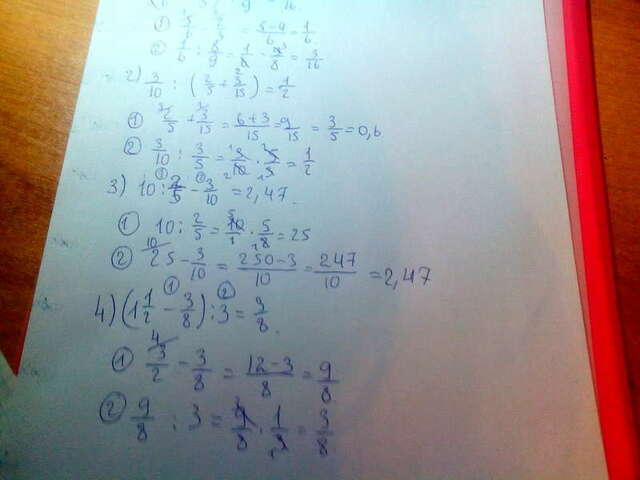 ① = 5-4/6 = 1/6
② 1/6 : 8/9 = = 3/16
2) 3/10 : (2/5 + 3/15) = 1/2
① 2/5 + 3/15 = 6+3/15 = 9/15 = 3/5 = 0,6
② 3/10 : 3/5 = 3/10 · 5/3 = 1/2
3) 10 : 2/5 - 3/10 = 2,47.
① 10 : 2/5 = 10/1 · 5/2 = 25
② 25 - 3/10 = 250-3/10 = 247/10 = 2,47
4) (1 1/2 - 3/8) : 3 = 9/8.
① 3/2 - 3/8 = 12-3/8 = 9/8
② 9/8 : 3 = 9/8 · 1/3 = 3/8